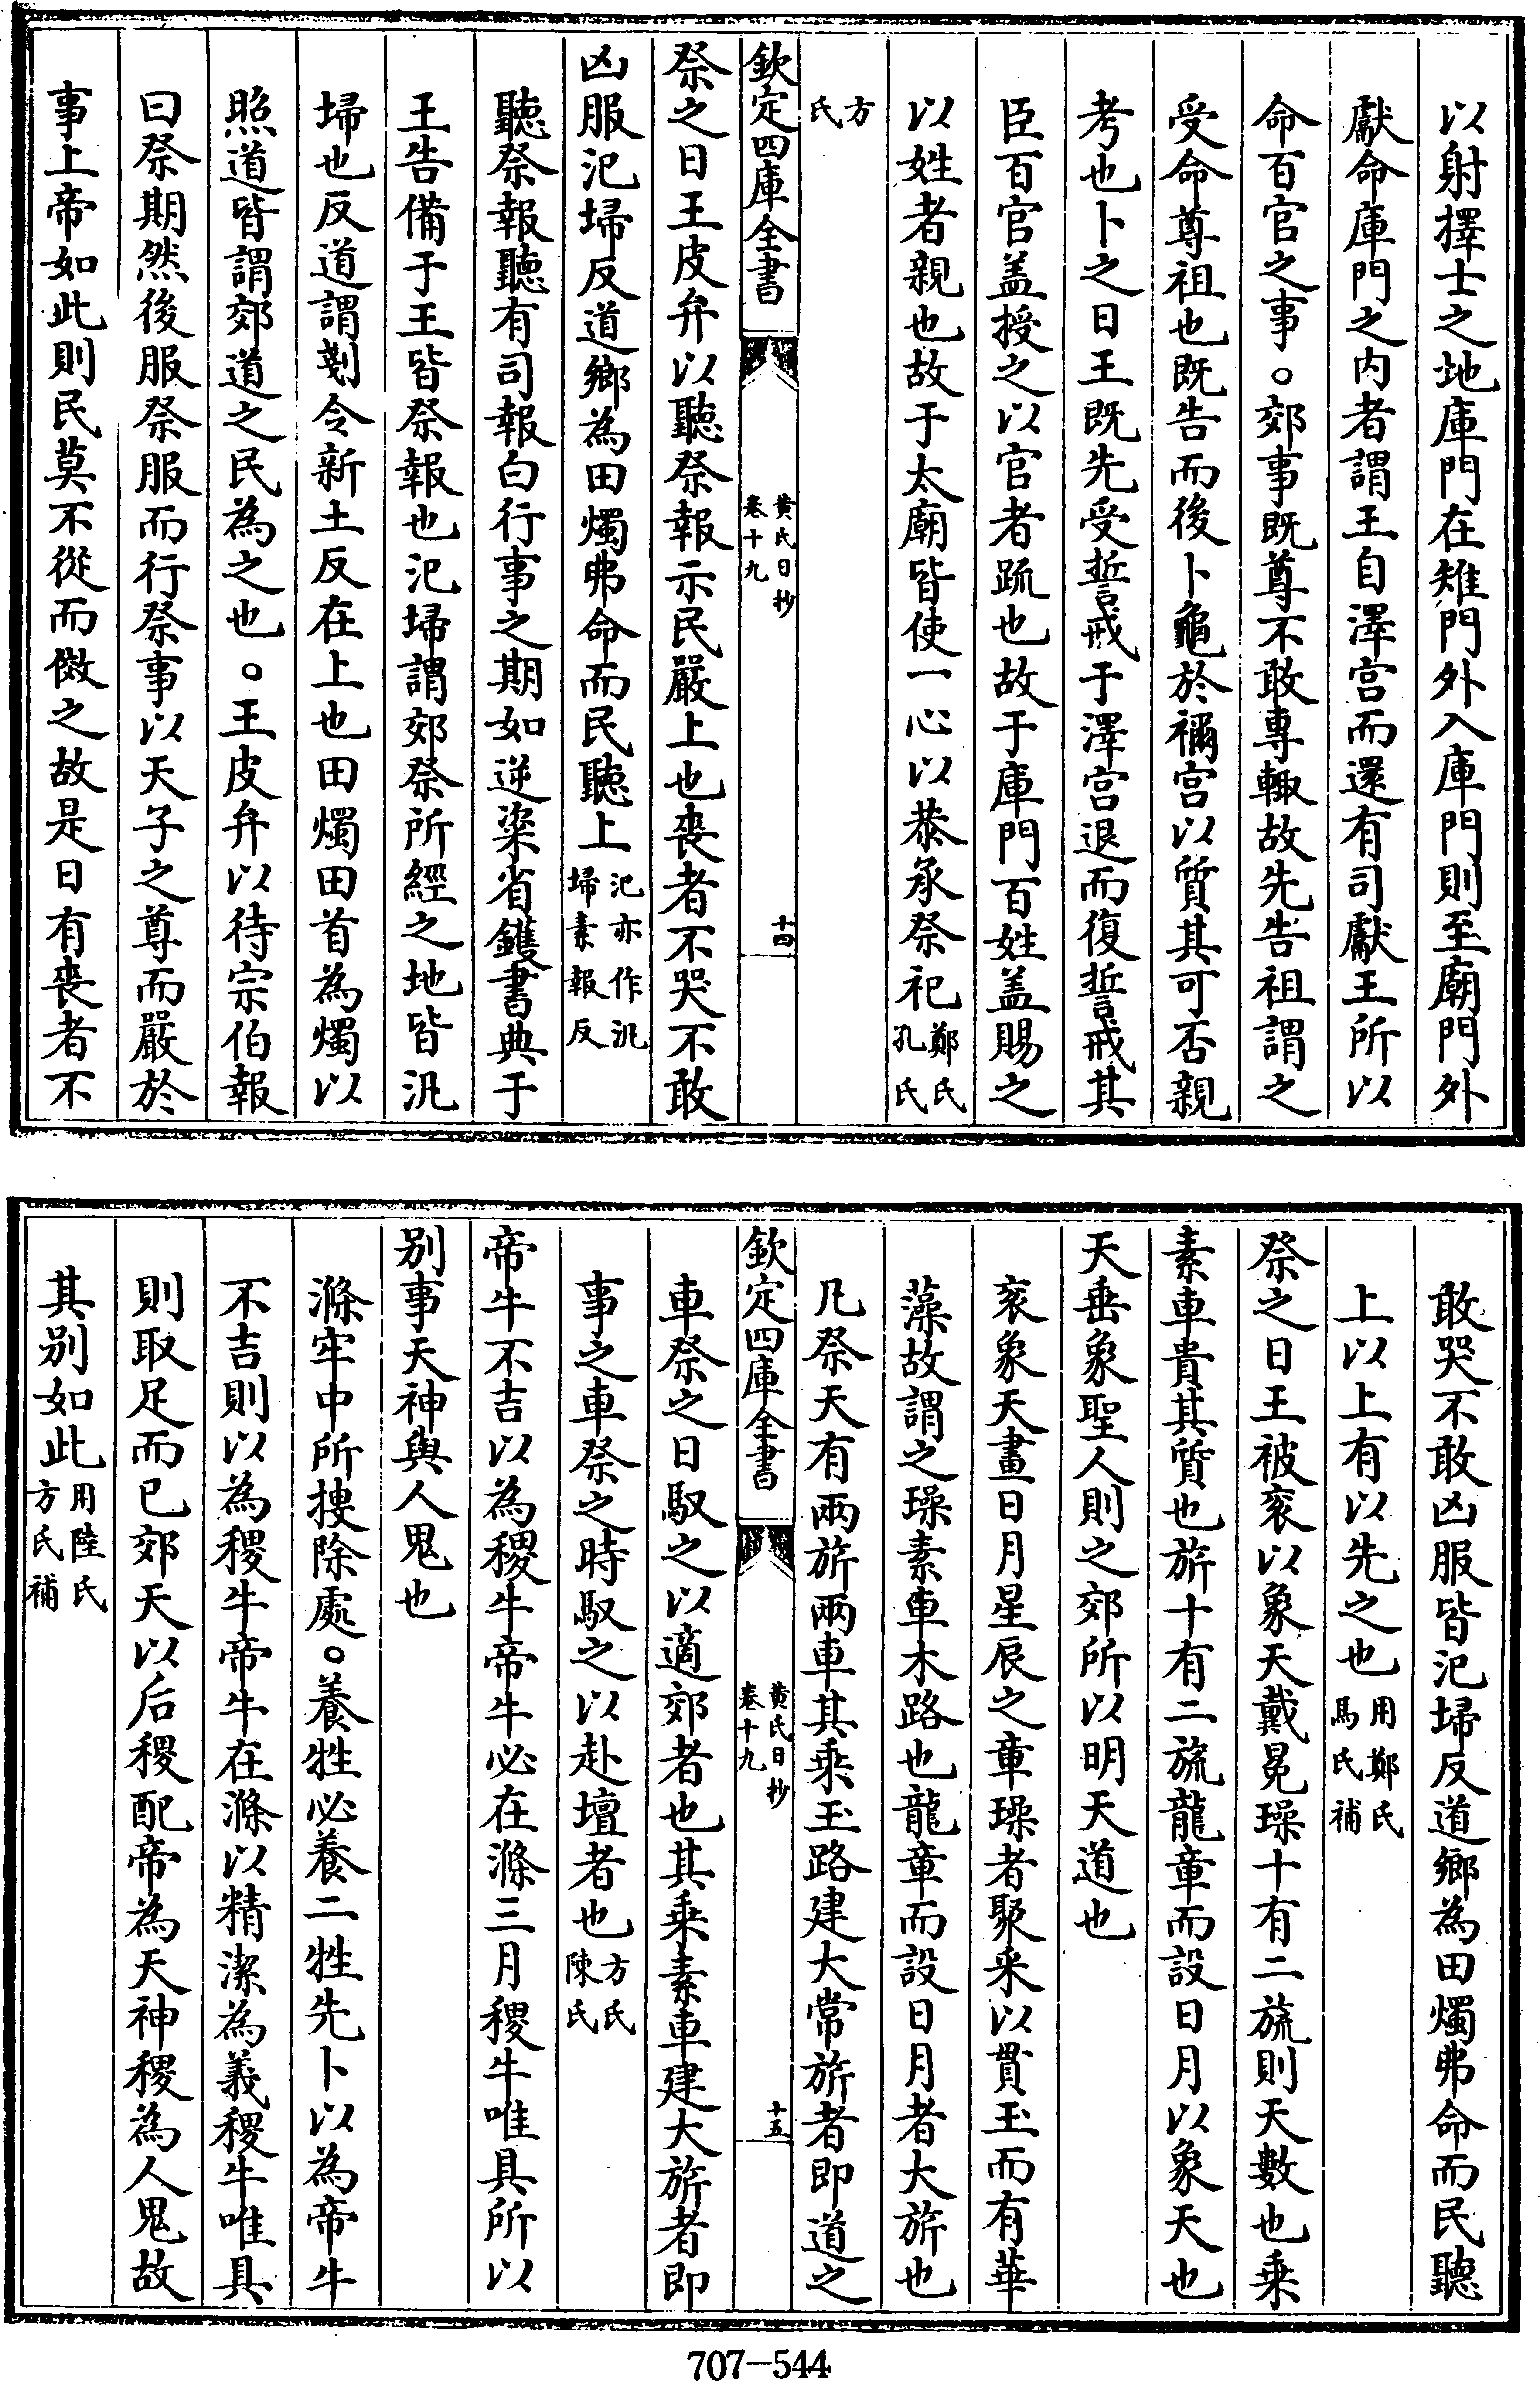 以射擇士之地庫門在雉門外入庫門則至廟門外
獻命庫門之内者謂王自澤宫而還有司獻王所以
命百官之事○郊事既尊不敢專輙故先告祖謂之
受命尊祖也既告而後卜龜於禰宫以質其可否親
考也卜之日王既先受誓戒于澤宫退而復誓戒其
臣百官盖授之以官者疏也故于庫門百姓盖賜之
以姓者親也故于太廟皆使一心以恭承祭祀鄭氏孔氏
方氏
欽定四庫全書
黄氏日抄
卷十九
十四
祭之日王皮弁以聽祭報示民嚴上也喪者不哭不敢
凶服汜埽反道鄉為田燭弗命而民聽上汜亦作汎埽素報反
聽祭報聽有司報白行事之期如逆粢省鑊書典于
王告備于王皆祭報也汜埽謂郊祭所經之地皆汎
埽也反道謂剗令新土反在上也田燭田首為燭以
照道皆謂郊道之民為之也○王皮弁以待宗伯報
曰祭期然後服祭服而行祭事以天子之尊而嚴於
事上帝如此則民莫不從而傚之故是日有喪者不
敢哭不敢凶服皆汜埽反道鄉為田燭弗命而民聽
上以上有以先之也用鄭氏馬氏補
祭之日王被衮以象天戴冕璪十有二旒則天數也乗
素車貴其質也旂十有二旒龍章而設日月以象天也
天垂象聖人則之郊所以明天道也
衮象天畫日月星辰之章璪者聚采以貫玉而有華
藻故謂之璪素車木路也龍章而設日月者大旂也
凡祭天有兩旂兩車其乗玉路建大常旂者即道之
欽定四庫全書
黄氏日抄
卷十九
十五
車祭之日馭之以適郊者也其乗素車建大旂者即
事之車祭之時馭之以赴壇者也方氏陳氏
帝牛不吉以為稷牛帝牛必在滌三月稷牛唯具所以
别事天神與人鬼也
滌牢中所摟除處○養牲必養二牲先卜以為帝牛
不吉則以為稷牛帝牛在滌以精潔為義稷牛唯具
則取足而已郊天以后稷配帝為天神稷為人鬼故
其别如此用陸氏方氏補
707-544